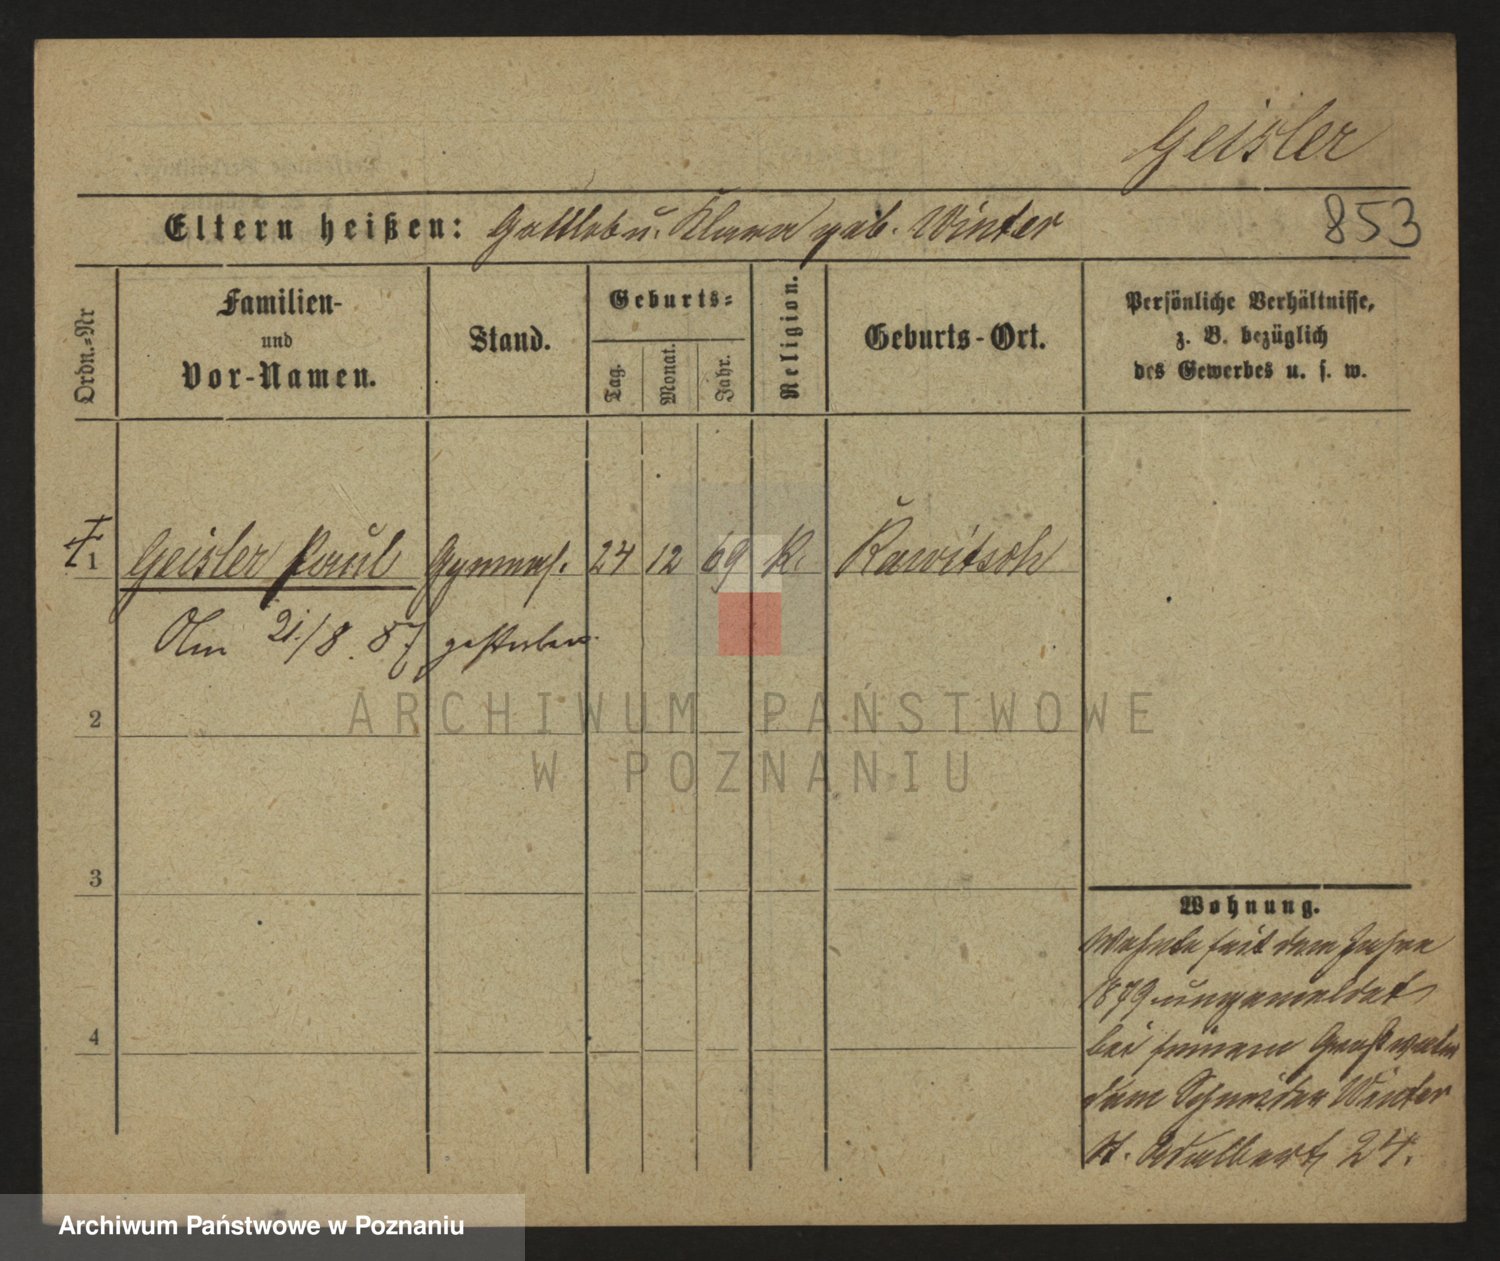 Geisler
Eltern heißen: Gottlob u. Klara geb. Winter
853
Ordn.-Nr
Familien-
und
Vor-Namen.
Stand.
Geburts-
Tag.
Monat.
Jahr.
Religion.
Geburts-Ort.
Persönliche Verhältnisse,
z. B. bezüglich
des Gewerbes u. s. w.
1 Geisler Paul Gymnas. 24 12 69 K. Rawitsch
Am 21/8. 87 gestorben.
2
3
4
Wohnung.
Wohnte seit dem Jahre
1879 ungemeldet
bei seinem Großvater
dem Schneider Winter
St. Adalbert 24.
ARCHIWUM PAŃSTWOWE
W POZNANIU
Archiwum Państwowe w Poznaniu